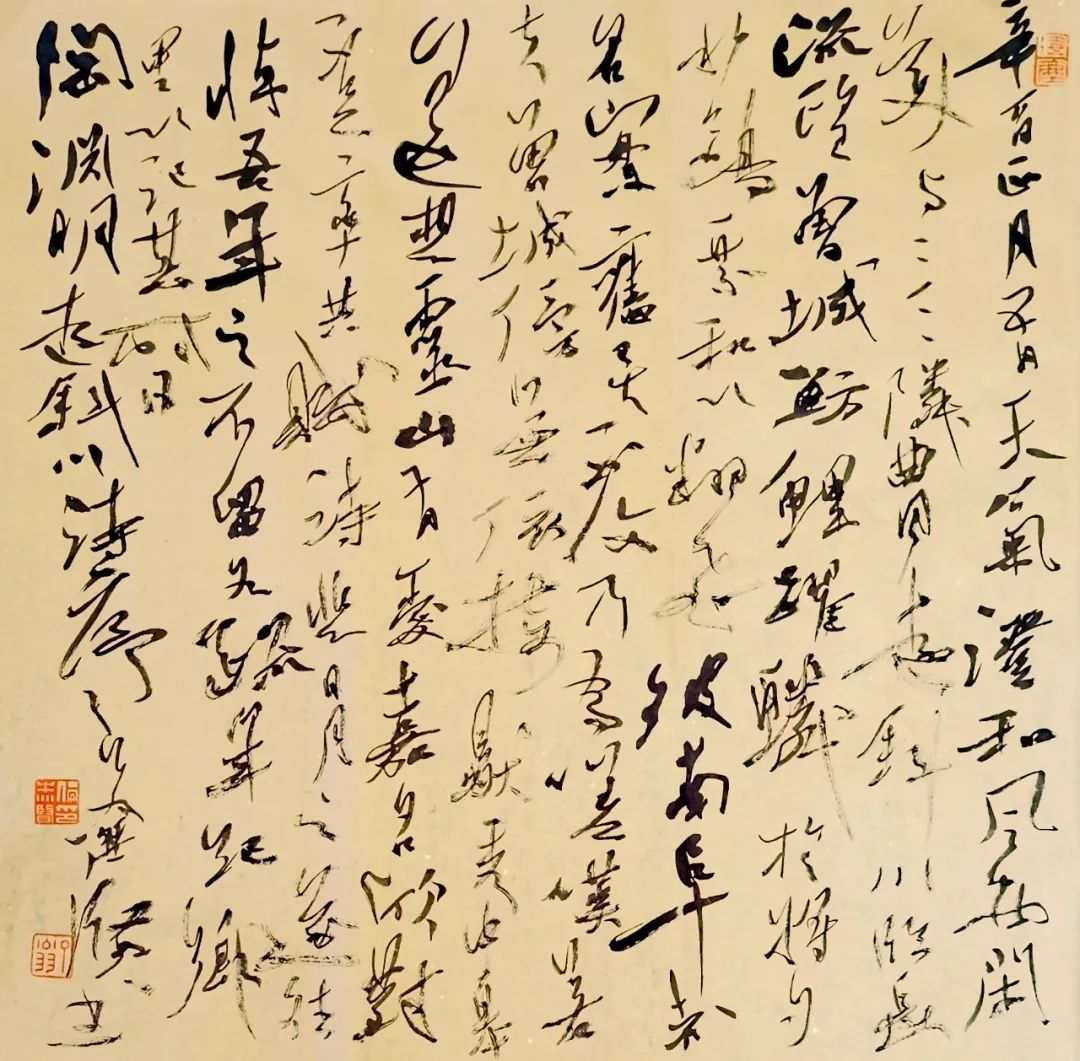 辛酉正月五日天氣澄和風物閑
美與二三隣曲同遊斜川臨長
流望曾城魴鯉躍鱗於將夕
水鷗乘和以翻飛彼南阜者
名山實舊矣不復乃為嗟嘆若
夫曾城傍無依接獨秀中皋
遙想靈山有愛嘉名欣對
不足率共賦詩悲日月之遂往
悼吾年之不留各疏年紀鄉
里以記其時日
陶淵明遊斜川詩序 書